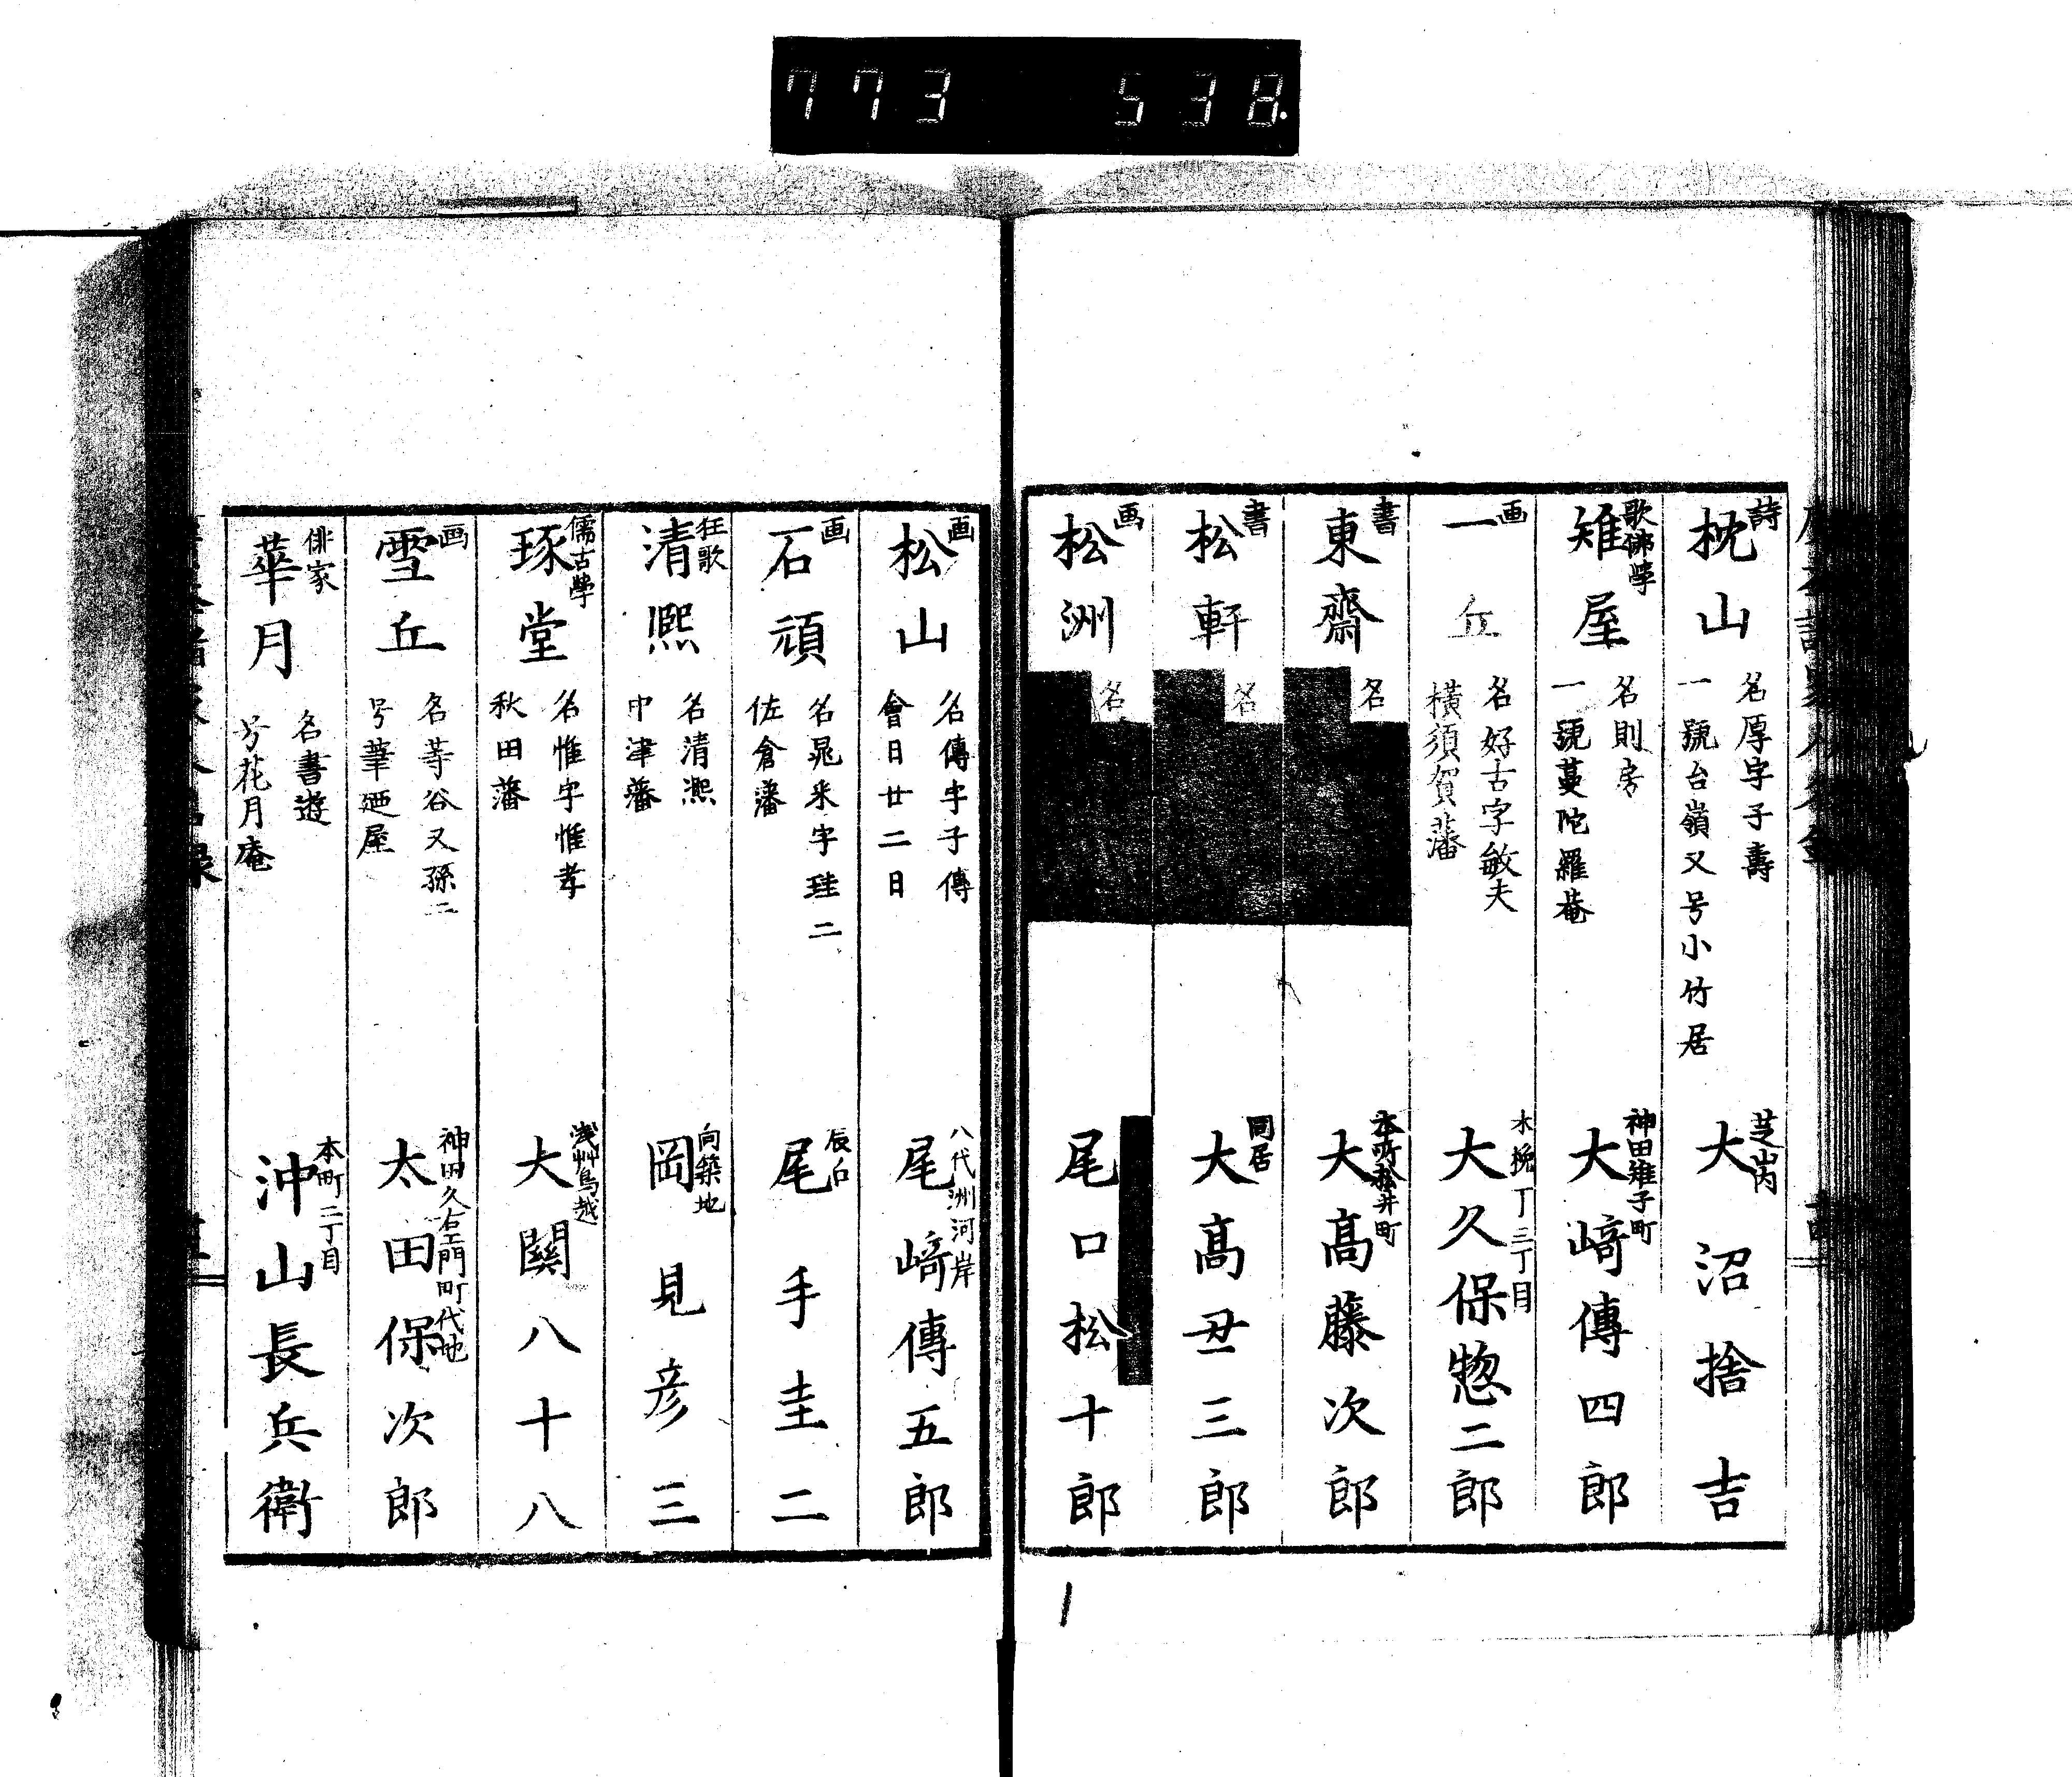 773 538.
詩
枕山
名厚字子壽
一號台嶺又号小竹居
芝山内
大沼捨吉
歌佛學
雉屋
名則房
一號蔓陀羅菴
神田雉子町
大﨑傳四郎
画
一丘
名好古字敏夫
横須賀藩
木挽丁三丁目
大久保惣二郎
書
東齋
名
本所松井町
大髙藤次郎
書
松軒
名
同居
大髙丑三郎
画
松洲
名
尾口松十郎
画
松山
名傳字子傳
會日廿二日
八代洲河岸
尾﨑傳五郎
画
石頑
名晁采字珪二
佐倉藩
辰口
尾手圭二
狂歌
清熈
名清凞
中津藩
向築地
岡見彦三
儒古學
琢堂
名惟字惟孝
秋田藩
浅艸鳥越
大關八十八
画
雪丘
名等谷又孫二
号華廼屋
神田久右エ門町代地
太田保次郎
俳家
華月
名書遊
号花月庵
本町二丁目
沖山長兵衛